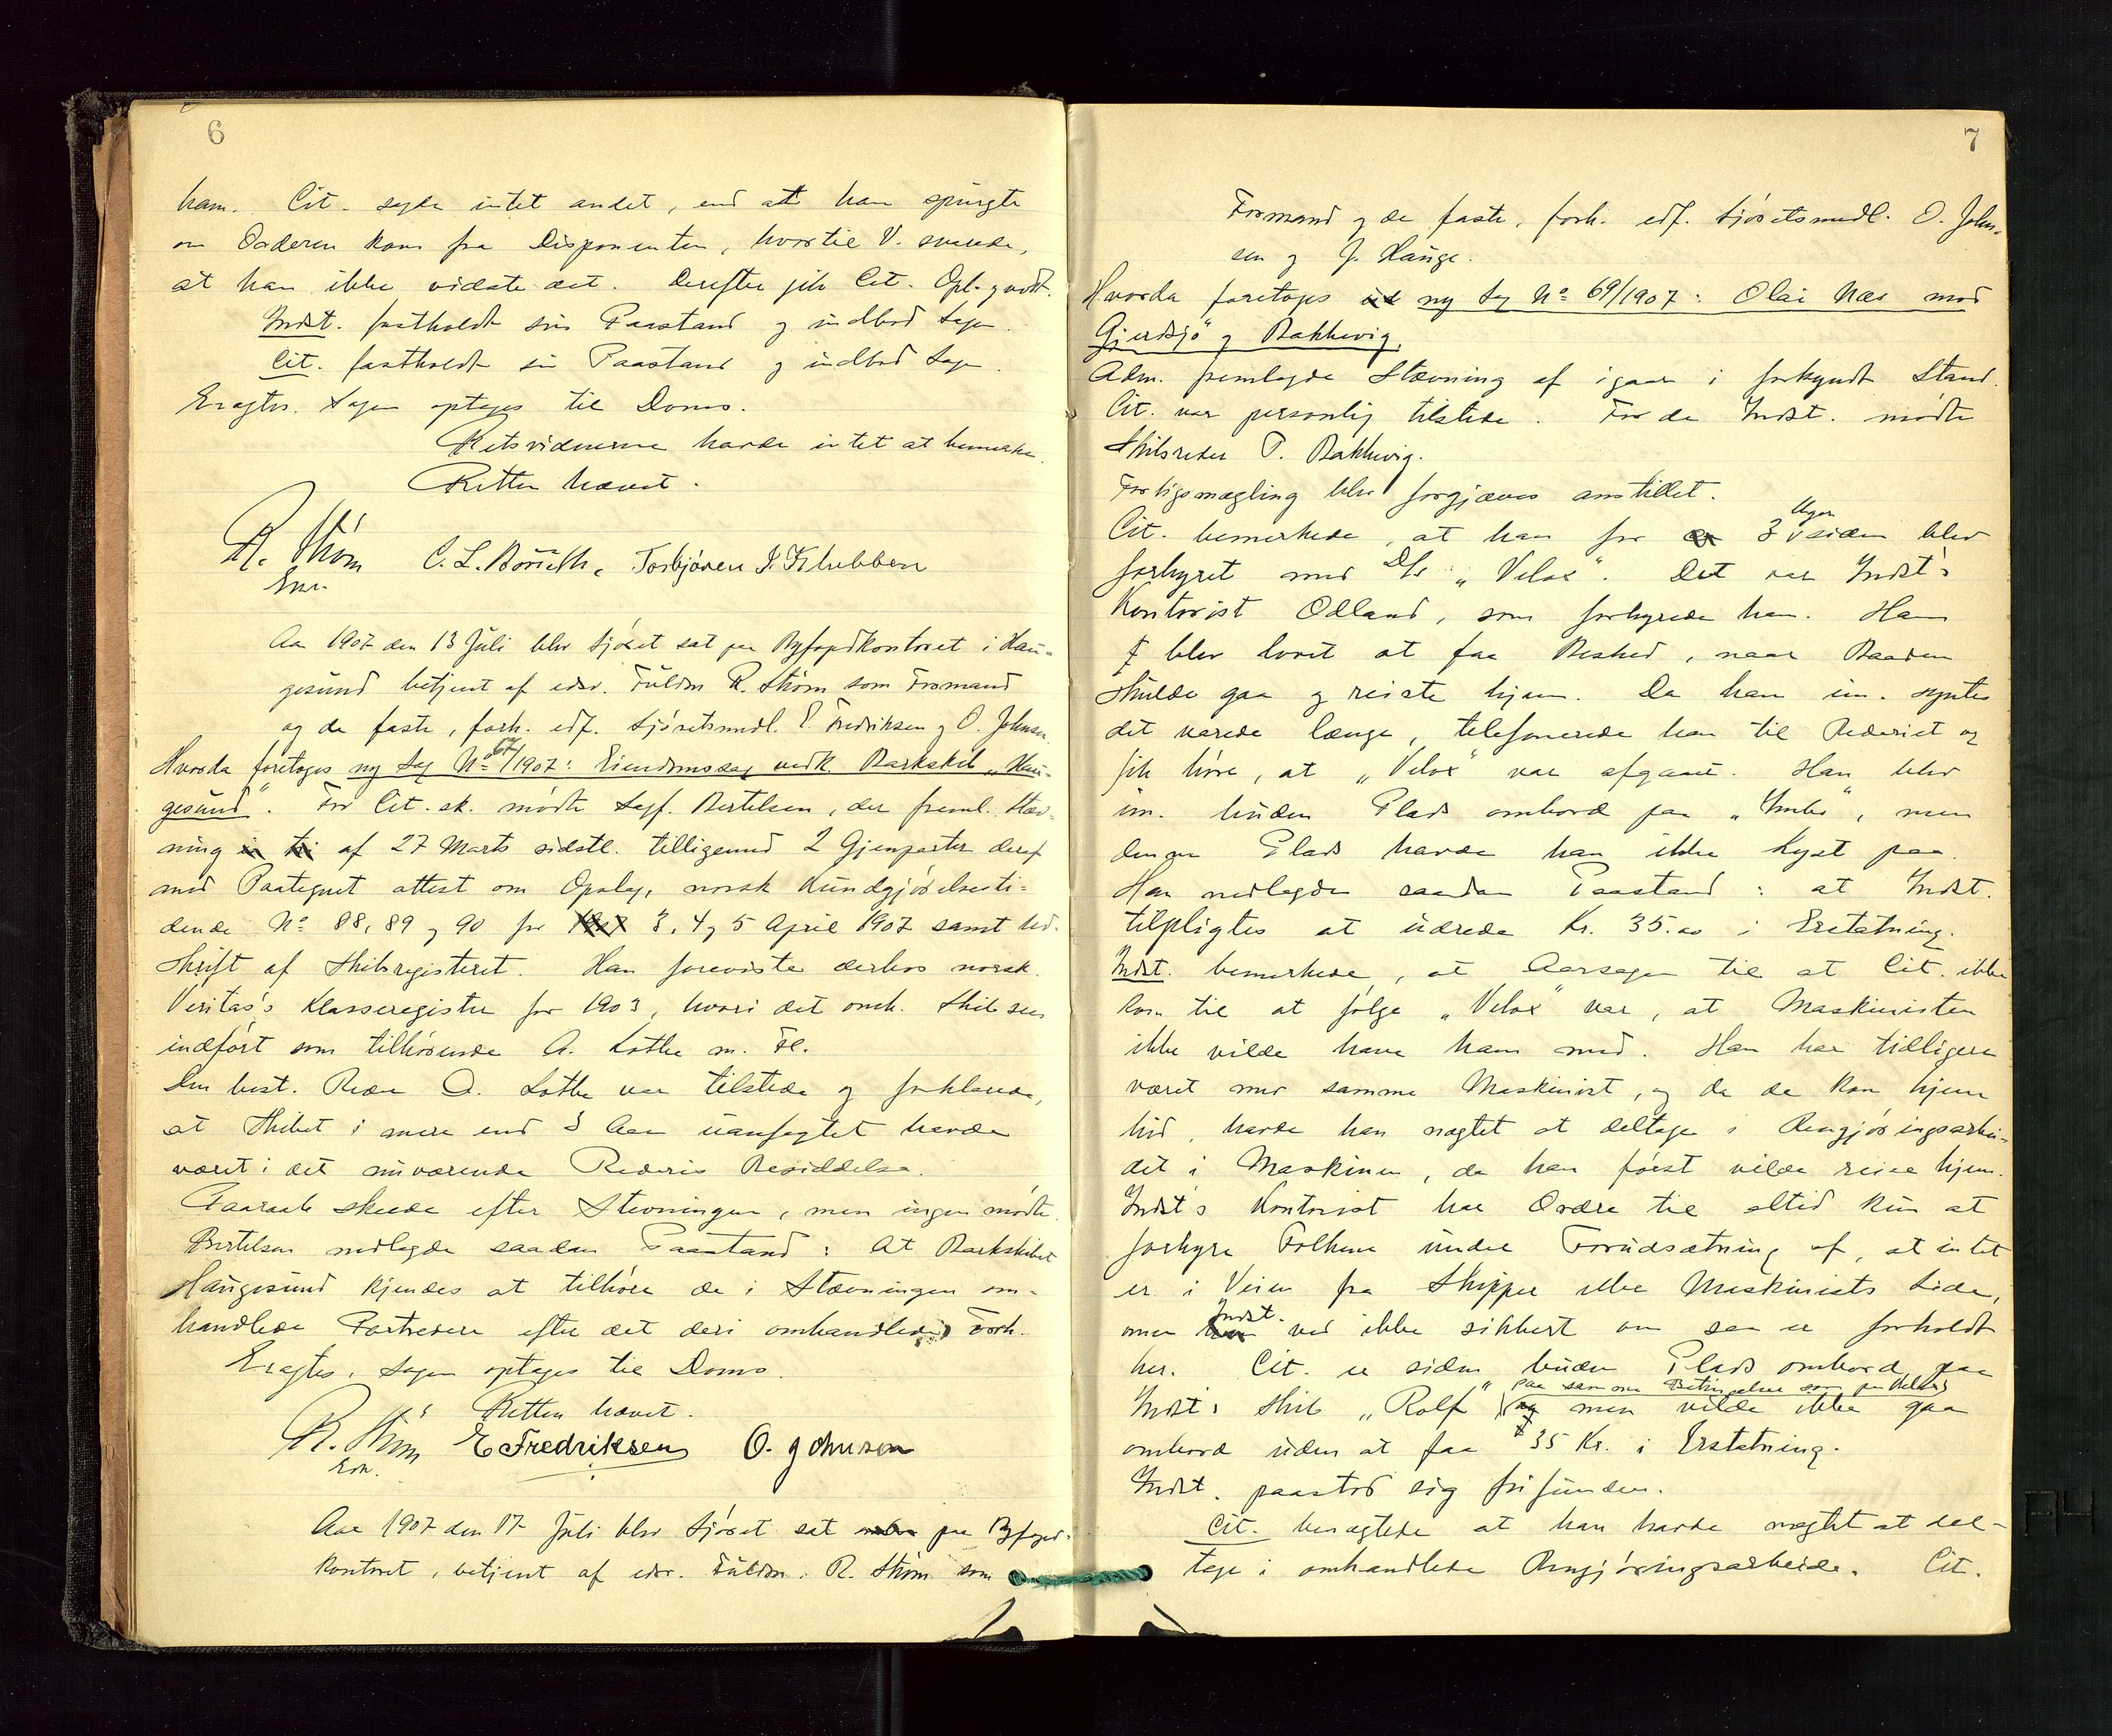 6
ham. Cit. sagde intet andet, end at han spurgte
om Orderen kom fra Disponenten, hvortil V. svarede,
at han ikke vidste det. Derefter gik Cit. Opl. g vedt.
Indst. fastholdt sin Paastand og indlod Sagen.
Cit. fastholdt sin Paastand og indlod Sagen.
Eragtes. Sagen optages til Doms.
Retsvidnerne havde intet at bemerke.
Retten hævet.
R. Strøm C. L. Torbjøren I. Klubben
Aar 1907 den 13 Juli blev Sjøret sat paa Byfogdkontoret i Hau-
gesund betjent af edsv. Fuldm R. Strøm som Formand
og de faste, forh. edf. Sjøretsmedl. E. Fredriksen og O. Johnsen.
Hvorda foretoges ny Sag No 67/1907: Eiendomssag vedk. Barkskib „Hau-
gesund". For Cit. sk. mødte Sagf. Bertelsen, der freml. Stæv-
ning af 27 Marts sidstl. tilligemed 2 Gjenparter deraf
med Paategnet attest om Opslag, norsk Kundgjørelsesti-
dende No 88, 89 og 90 for 3, 4 og 5 April 1907 samt Ud-
skrift af Skibsregisteret. Han foreviste derhos norsk
Veritas's Klasseregister for 1903, hvori det omh. Skib sees
indført som tilhørende A. Lothe m. Fl.
Den best. Reder D. Lothe var tilstede og forklarede,
at Skibet i mere end 3 Aar uanfegtet havde
været i det nuværende Rederis Besiddelse.
Paaraab skede efter Stevningen, men ingen mødte.
Bertelsen nedlagde saadan Paastand: At Barkskibet
Haugesund kjendes at tilhøre de i Stævningen om-
handlede Partredere efter det deri omhandlede Forh.
Eragtes. Sagen optages til Doms.
Retten hævet.
R. Strøm E Fredriksen O. Johnsen
Aar 1907 den 17 Juli blev Sjøret sat paa Byfogd-
kontoret, betjent af edsv. Fuldm. R. Strøm som
7
Formand og de faste, forh. edf. Sjøretsmedl. O. John-
sen og J. Hauge.
Hvorda foretoges ny Sag No 69/1907: Olai Næs mod
Gjerdsjø og Bakkevig.
Adm. fremlagde Stævning af igaar i forkyndt Stand.
Cit. var personlig tilstede. For de Indst. mødte
Skibsreder T. Bakkevig.
Forligsmægling blev forgjæves anstillet.
Cit. bemerkede, at han for 3 Uger siden blev
forhyret med D/S „Velox". Det var Indst's
Kontorist Odland, som forhyrede ham. Han
blev lovet at faa Besked, naar Baaden
skulde gaa og reiste hjem. Da han im. syntes
det varede længe, telefonerede han til Rederiet og
fik høre, at „Velox" var afgaaet. Han blev
im. buden Plads ombord paa , men
denne Plads havde han ikke Lyst paa.
Han nedlagde saadan Paastand: at Indst.
tilpligtes at udrede Kr. 35.00 i Erstatning.
Indst. bemerkede, at Aarsagen til at Cit. ikke
kom til at følge „Velox" var, at Maskinisten
ikke vilde have ham med. Han har tidligere
været med samme Maskinist, og da de kom hjem
hid, havde han nægtet at deltage i Rengjøringsarbei-
det i Maskinen, da han først vilde reise hjem.
Indst's Kontorist har Ordre til altid kun at
forhyre Folkene under Forudsætning af, at intet
er i Veien fra Skipper eller Maskinists Side,
men Indst. ved ikke sikkert om saa er forholdt
her. Cit. er siden buden Plads ombord paa
Indst's Skib „Rolf" paa samme Betingelser som paa Velox men vilde ikke gaa
ombord uden at faa 35 Kr. i Erstatning.
Indst. paastod sig frifunden.
Cit. benægtede at han havde nægtet at del-
tage i omhandlede Rengjøringsarbeide. Cit.